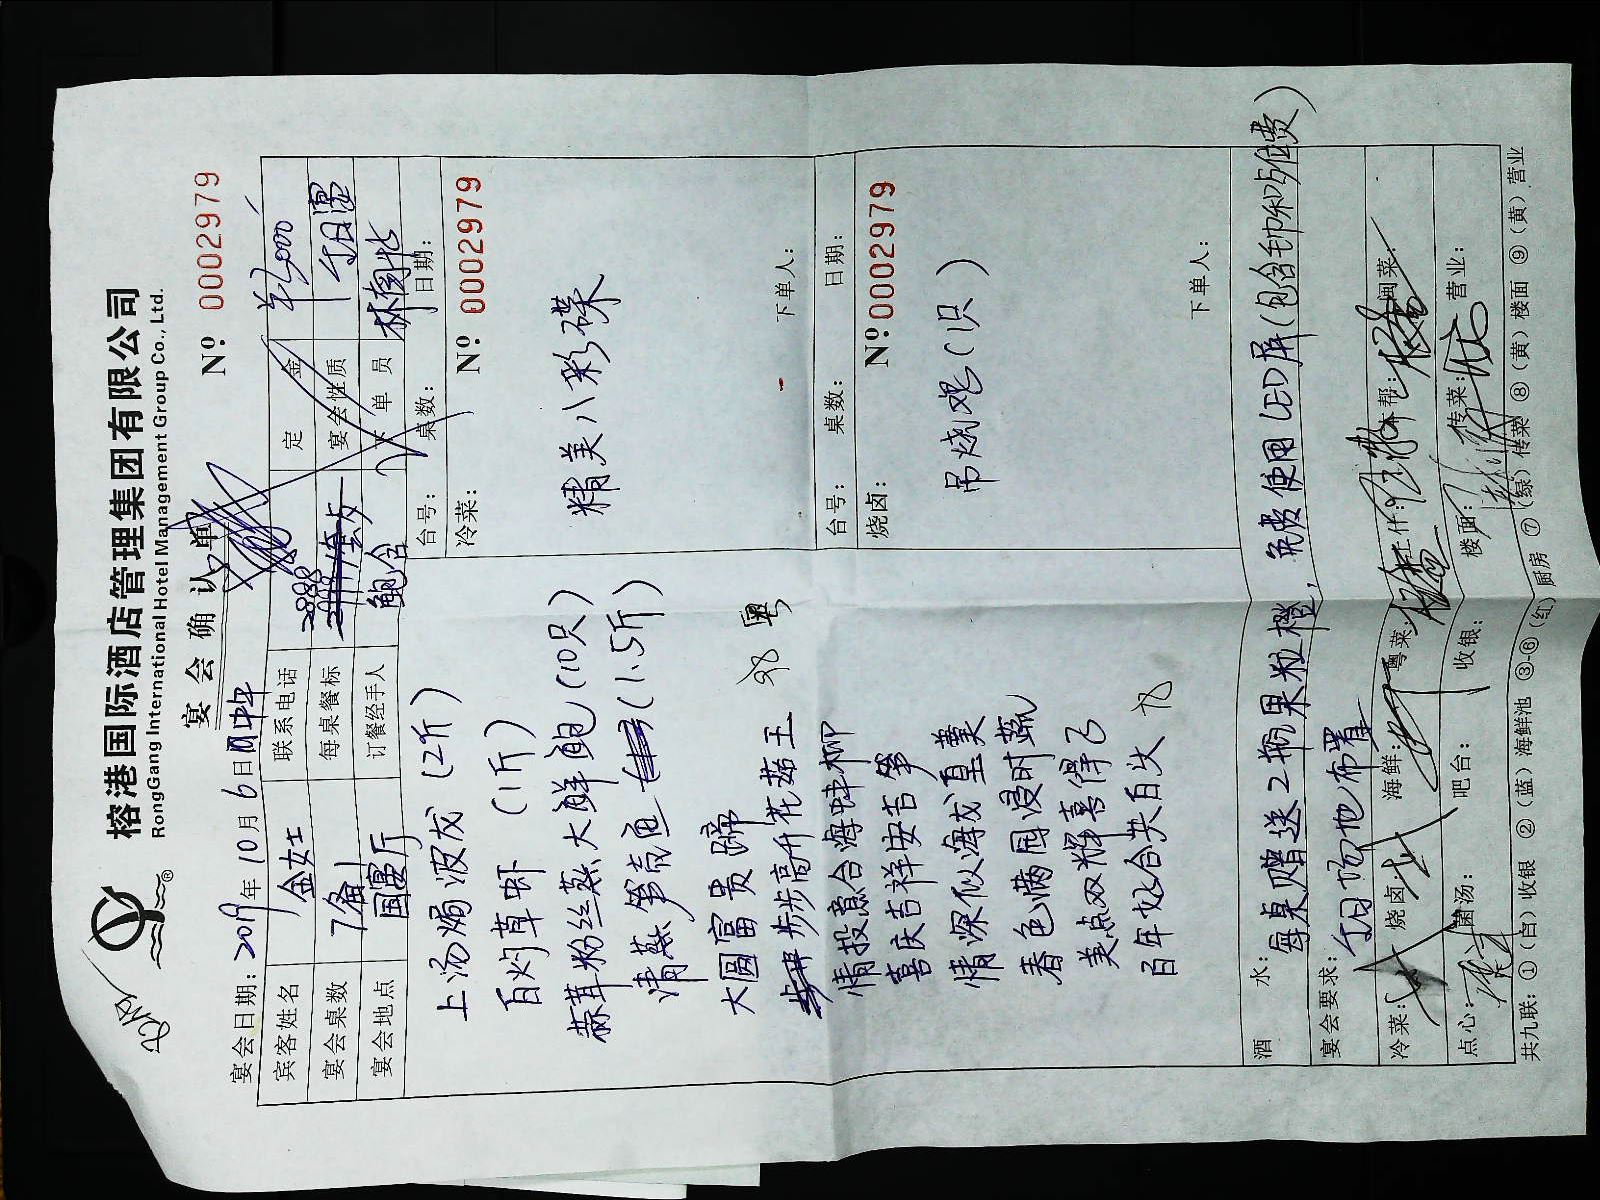 榕港国际酒店管理集团有限公司
RongGang International Hotel Management Group Co., Ltd.
宴会确认单
宴会日期:2019年10月6日中午
Nº 0002979
宾客姓名 金女士 联系电话 定金 ¥2000
宴会桌数 7备1 每桌餐标 2888 宴会性质 生日宴
宴会地点 国宴厅 订餐经手人 下单员 林南北
上汤焗波龙 (2斤)
百灼草虾 (1斤)
蒜茸粉丝蒸大鲜鲍(10只)
清蒸笋壳鱼 (1.5斤)
大圆富贵蹄
步步高升花菇王
粤
情投意合海蚌柳
喜庆吉祥安吉笋
情深似海龙皇羹
春色满园浸时蔬
美点双辉喜得子
百年好合共白头
台号: 桌数: 日期:
冷菜: Nº 0002979
精美八彩碟
下单人:
台号: 桌数: 日期:
烧卤: Nº 0002979
吊烧鸡(1只)
下单人:
酒水: 每桌赠送2瓶果粒橙,免费使用LED屏(包含毛巾和巧位费)
宴会要求: 生日场地布置
冷菜: 烧卤: 海鲜: 粤菜: 上什: 本帮: 闽菜:
点心: 菌汤: 吧台: 收银: 楼面: 传菜: 营业:
共九联: ①(白)收银 ②(蓝)海鲜池 ③-⑥(红)厨房 ⑦(绿)传菜 ⑧(黄)楼面 ⑨(黄)营业